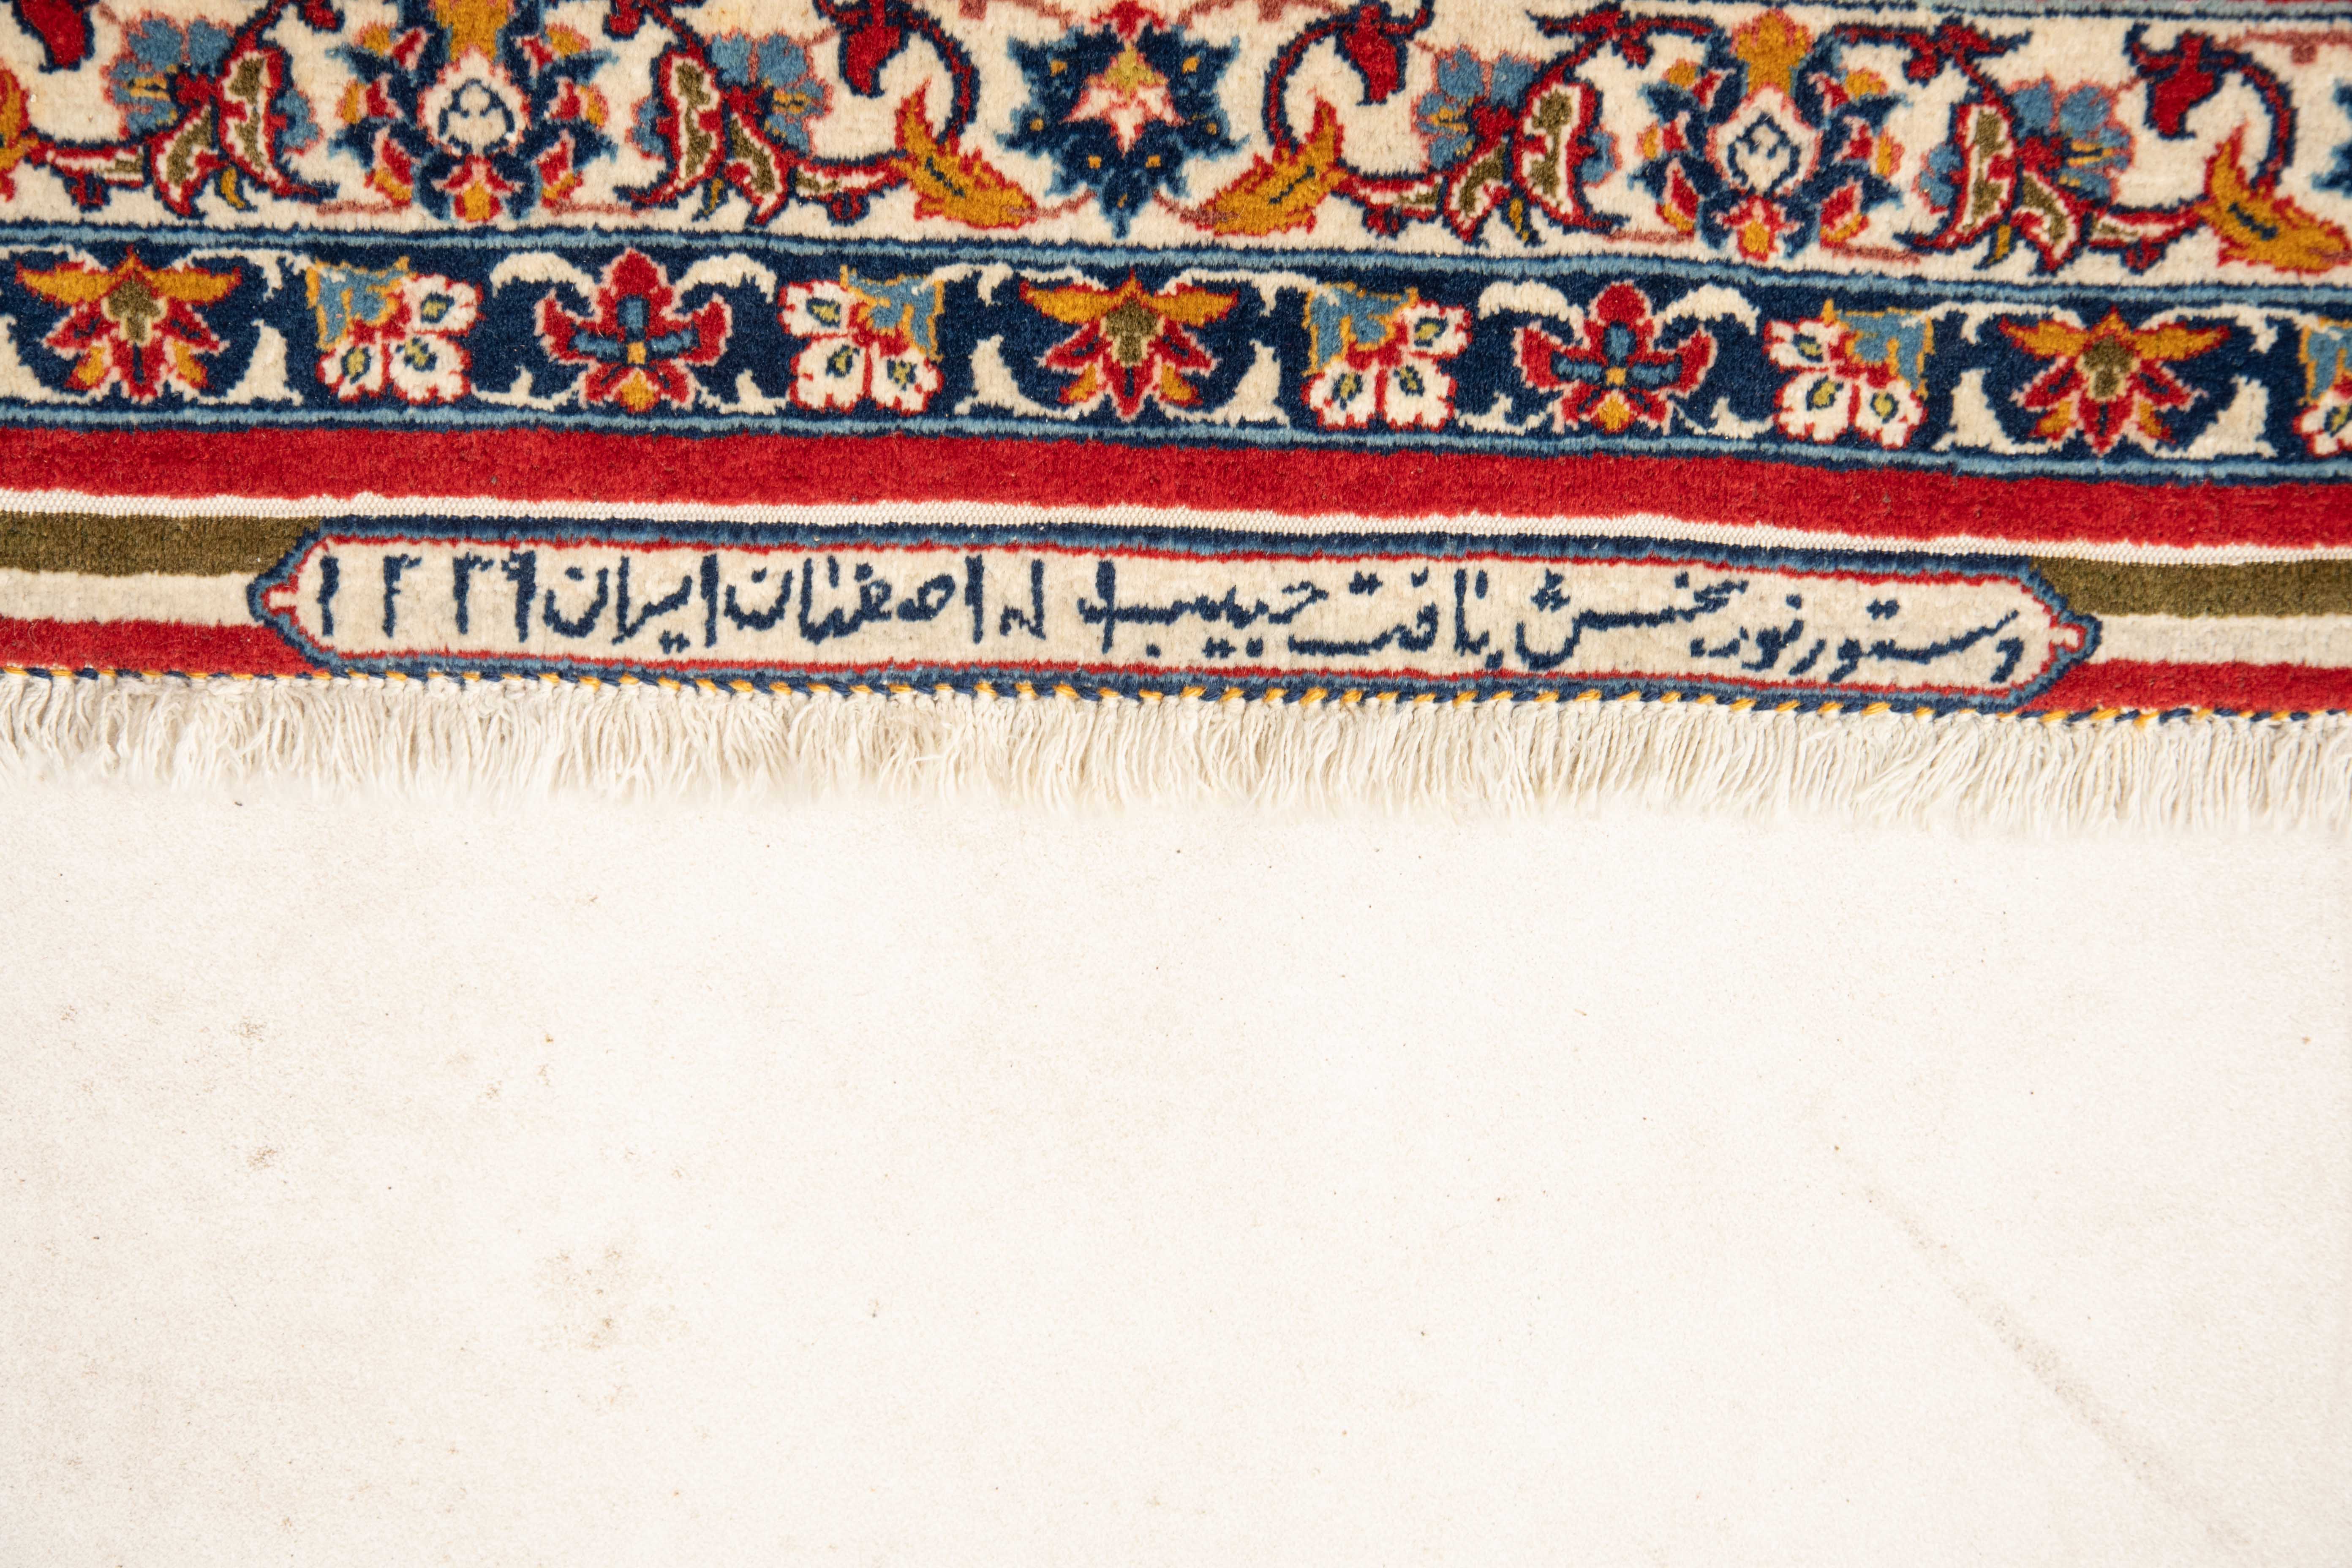 دستور نوربخش بافت حبیب اله اصفهان ایران ۱۳۳۹